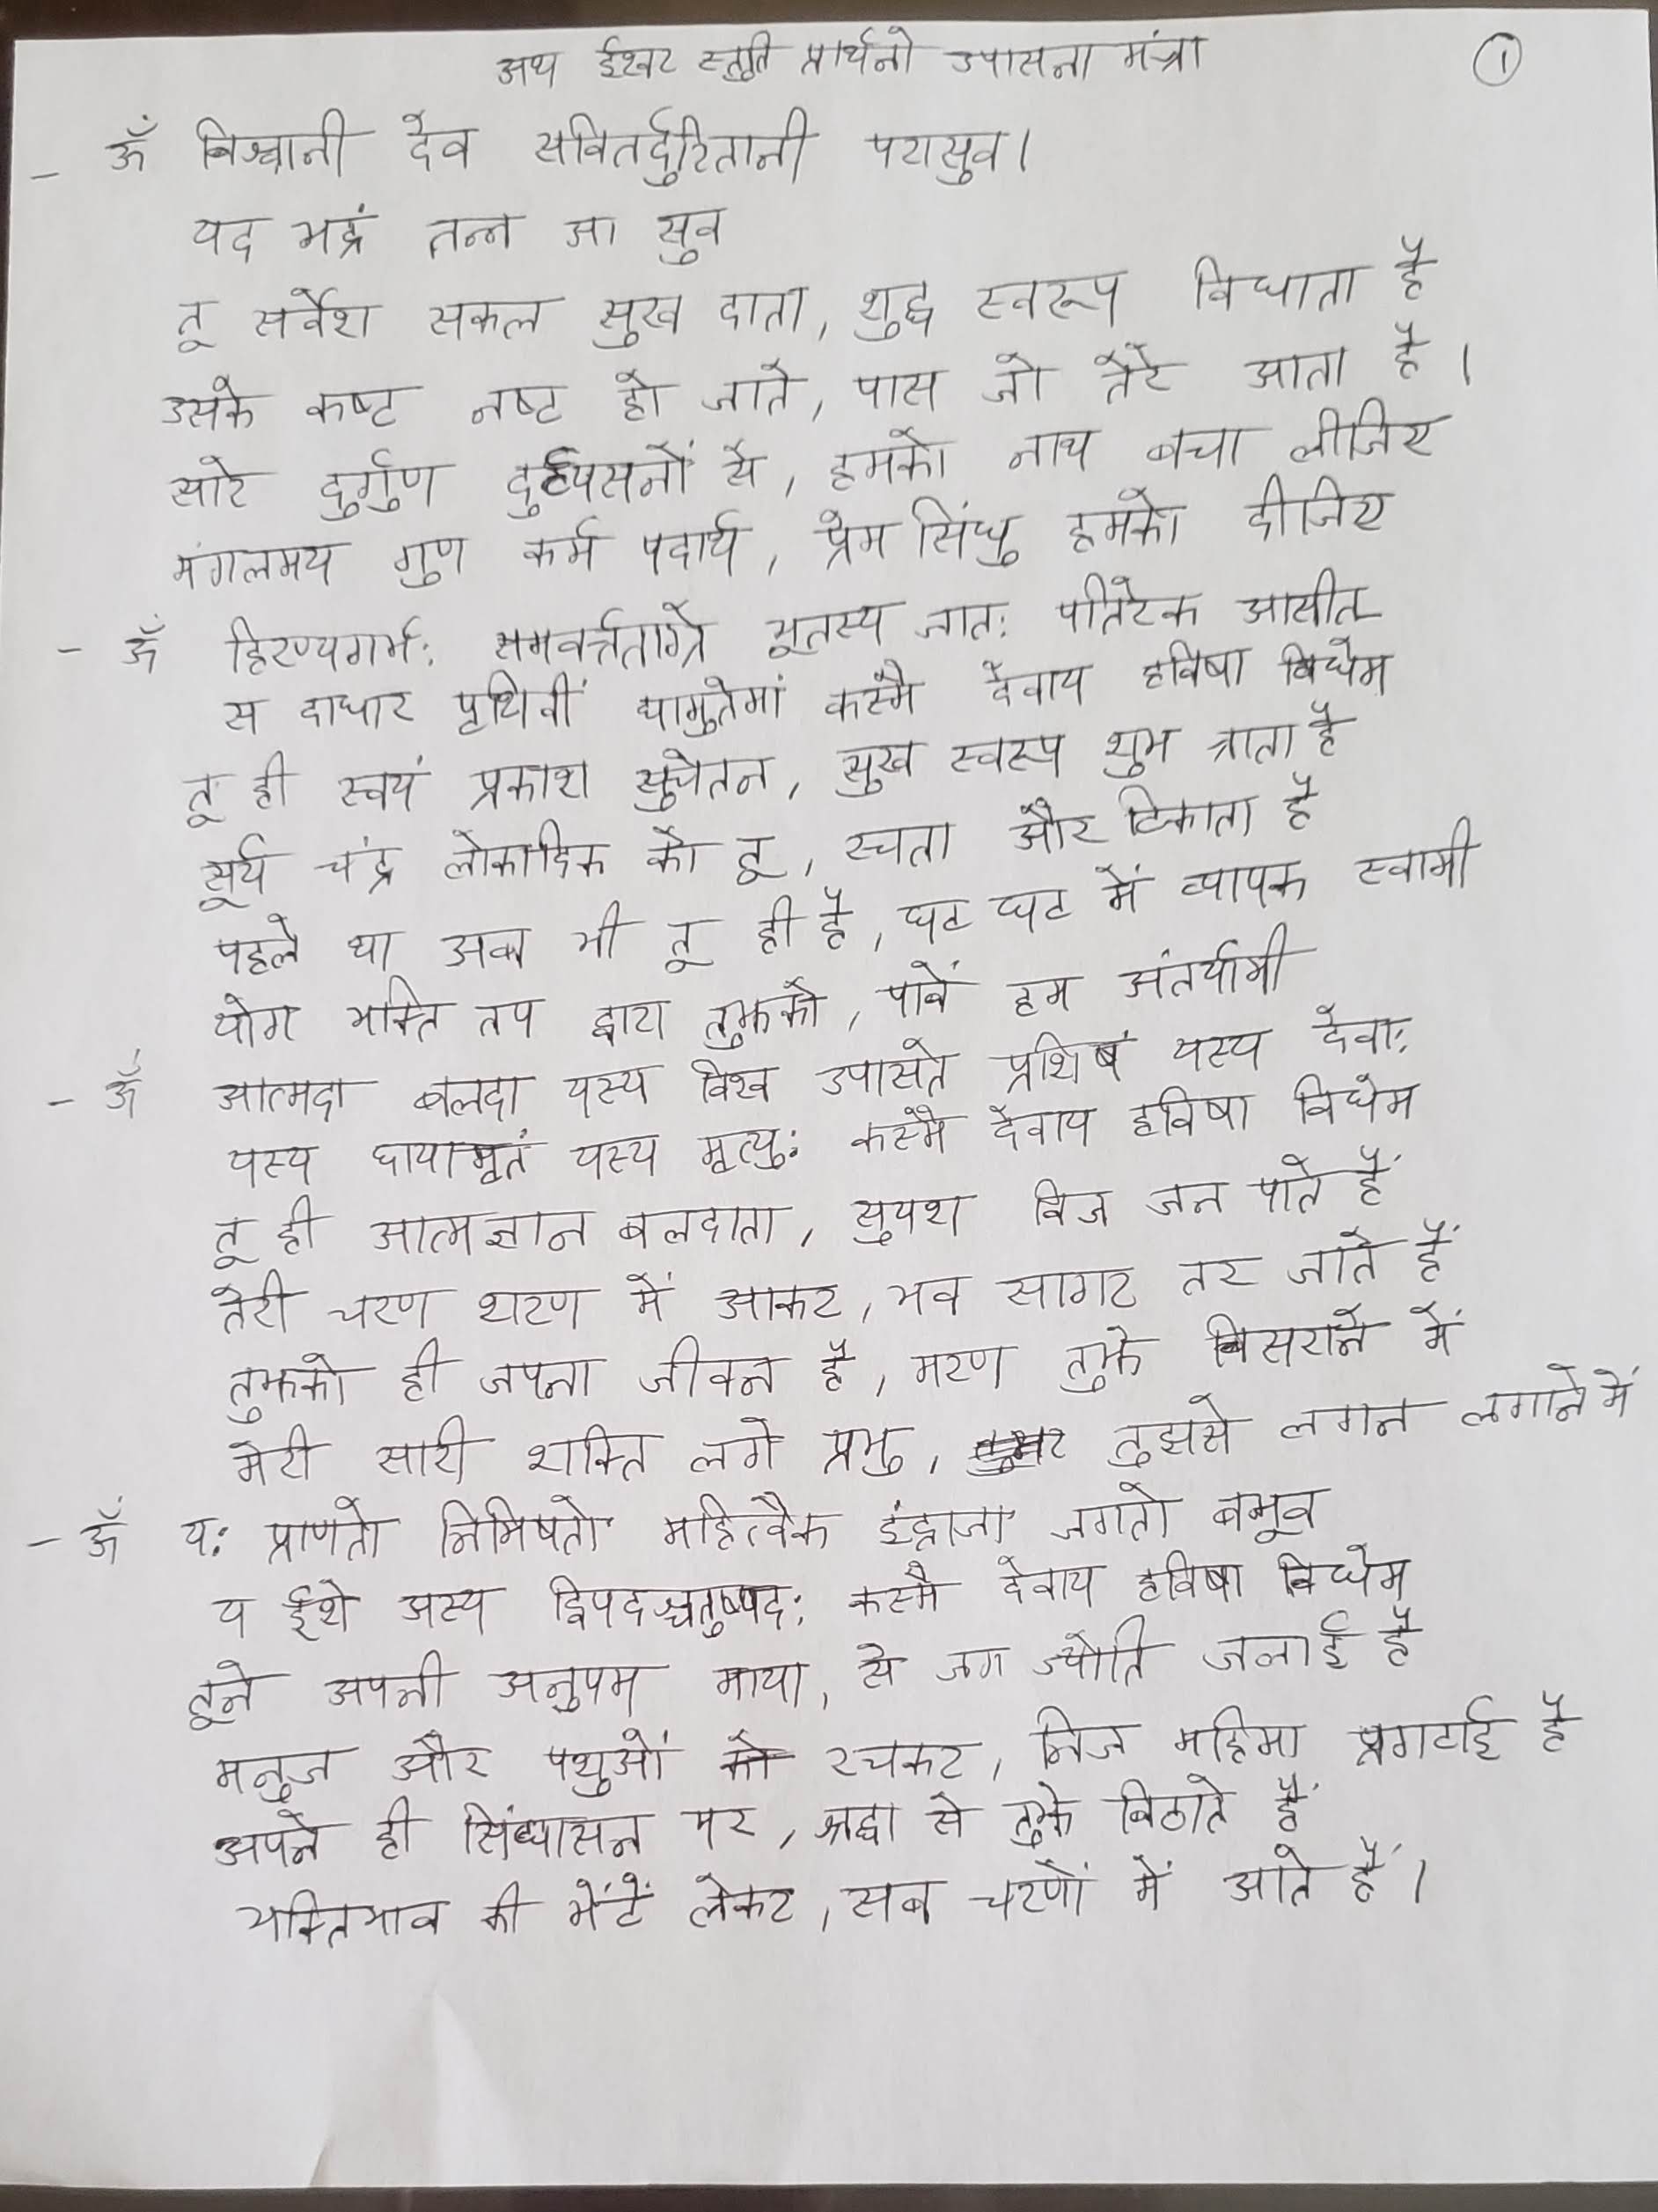 अथ ईश्वर स्तुति प्रार्थनो उपासना मंत्रा
1
- ॐ विश्वानी देव सवितर्दुरितानी परासुव।
यद भद्रं तन्न आ सुव
तू सर्वेश सकल सुख दाता, शुद्ध स्वरूप विधाता है
उसके कष्ट नष्ट हो जाते, पास जो तेरे आता है।
सारे दुर्गुण दुर्व्यसनों से, हमको नाथ बचा लीजिए
मंगलमय गुण कर्म पदार्थ, प्रेम सिंधु हमको दीजिए
- ॐ हिरण्यगर्भ: समवर्त्तताग्रे भूतस्य जात: पतिरेक आसीत
स दाधार पृथिवीं द्यामुतेमां कस्मै देवाय हविषा विधेम
तू ही स्वयं प्रकाश सुचेतन, सुख स्वरूप शुभ त्राता है
सूर्य चंद्र लोकादिक को तू, रचता और टिकाता है
पहले था अब भी तू ही है, घट घट में व्यापक स्वामी
योग भक्ति तप द्वारा तुझको, पावें हम अंतर्यामी
- ॐ आत्मदा बलदा यस्य विश्व उपासते प्रशिषं यस्य देवा:
यस्य छायामृतं यस्य मृत्यु: कस्मै देवाय हविषा विधेम
तू ही आत्मज्ञान बलदाता, सुयश विज्ञ जन पाते हैं
तेरी चरण शरण में आकर, भव सागर तर जाते हैं
तुझको ही जपना जीवन है, मरण तुझे बिसराने में
मेरी सारी शक्ति लगे प्रभु, तुझसे लगन लगाने में
- ॐ य: प्राणतो निमिषतो महित्वैक इंद्राजा जगतो बभूव
य ईशे अस्य द्विपदश्चतुष्पद: कस्मै देवाय हविषा विधेम
तूने अपनी अनुपम माया, से जग ज्योति जलाई है
मनुज और पशुओं को रचकर, निज महिमा प्रगटाई है
अपने ही सिंघासन पर, श्रद्धा से तुझे बिठाते हैं
भक्तिभाव की भेंटें लेकर, सब चरणों में आते हैं।